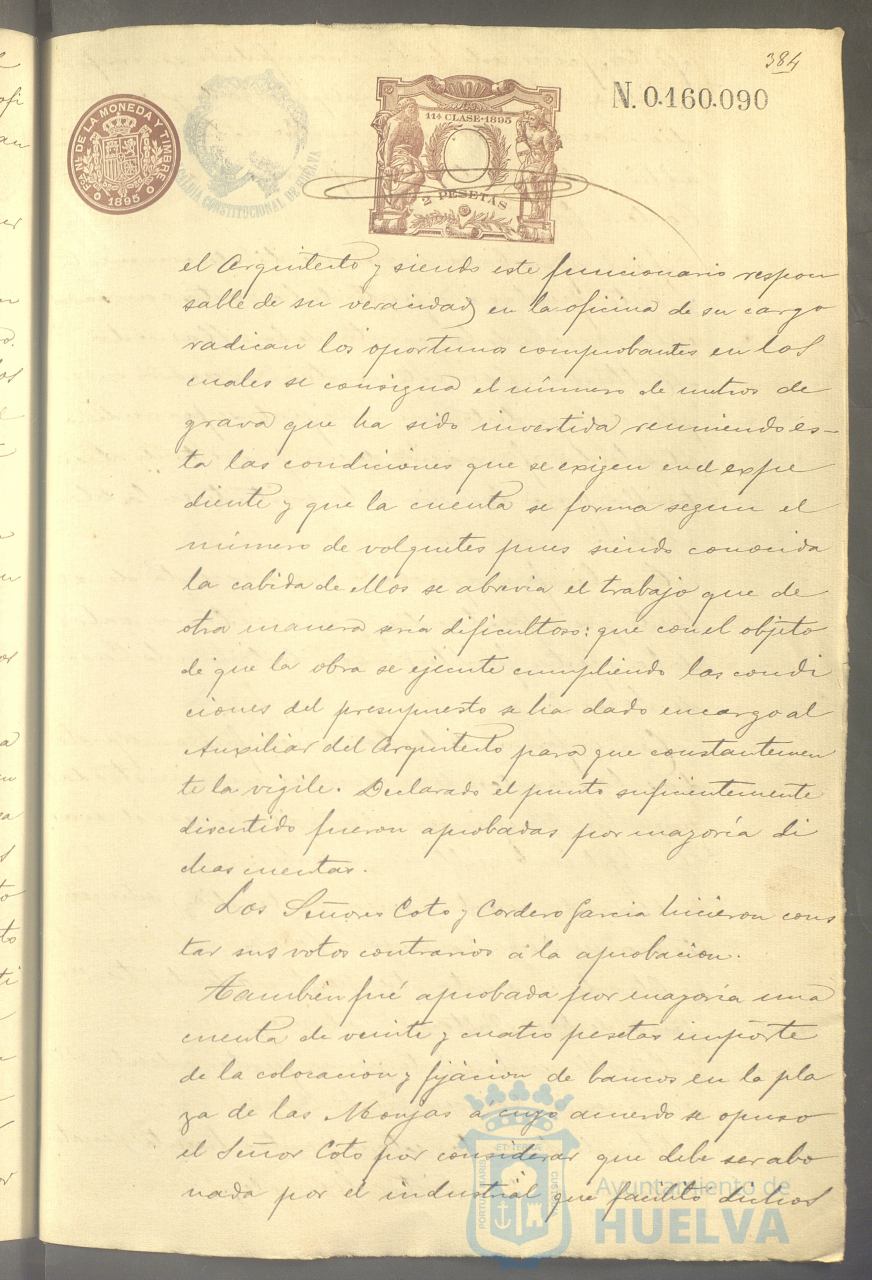 384
N. 0.160.090
FCA NL DE LA MONEDA Y TIMBRE
1895
ALCALDIA CONSTITUCIONAL DE HUELVA
11ª CLASE-1895
2 PESETAS
el Arquitecto y siendo este funcionario respon
sable de su veracidad en la oficina de su cargo
radican los oportunos comprobantes en los
cuales se consigna el número de metros de
grava que ha sido invertida reuniendo es-
ta las condiciones que se exigen en el expe
diente y que la cuenta se forma segun el
número de volquetes pues siendo conocida
la cabida de ellos se abrevia el trabajo que de
otra manera sería dificultoso: que con el objeto
de que la obra se ejecute cumpliendo las condi
ciones del presupuesto se ha dado encargo al
Auxiliar del Arquitecto para que constantemen
te la vigile. Declarado el punto suficientemente
discutido fueron aprobadas por mayoría di
chas cuentas.
Los Señores Coto y Cordero Garcia hicieron cons
tar sus votos contrarios á la aprobacion.
Tambien fué aprobada por mayoría una
cuenta de veinte y cuatro pesetas importe
de la colocacion y fijacion de bancos en la pla
za de las Monjas á cuyo acuerdo se opuso
el Señor Coto por considerar que debe ser abo
nada por el industrial que facilitó dichos
PORTUS MARIS ET TERRAE CUSTODIA
Ayuntamiento de
HUELVA